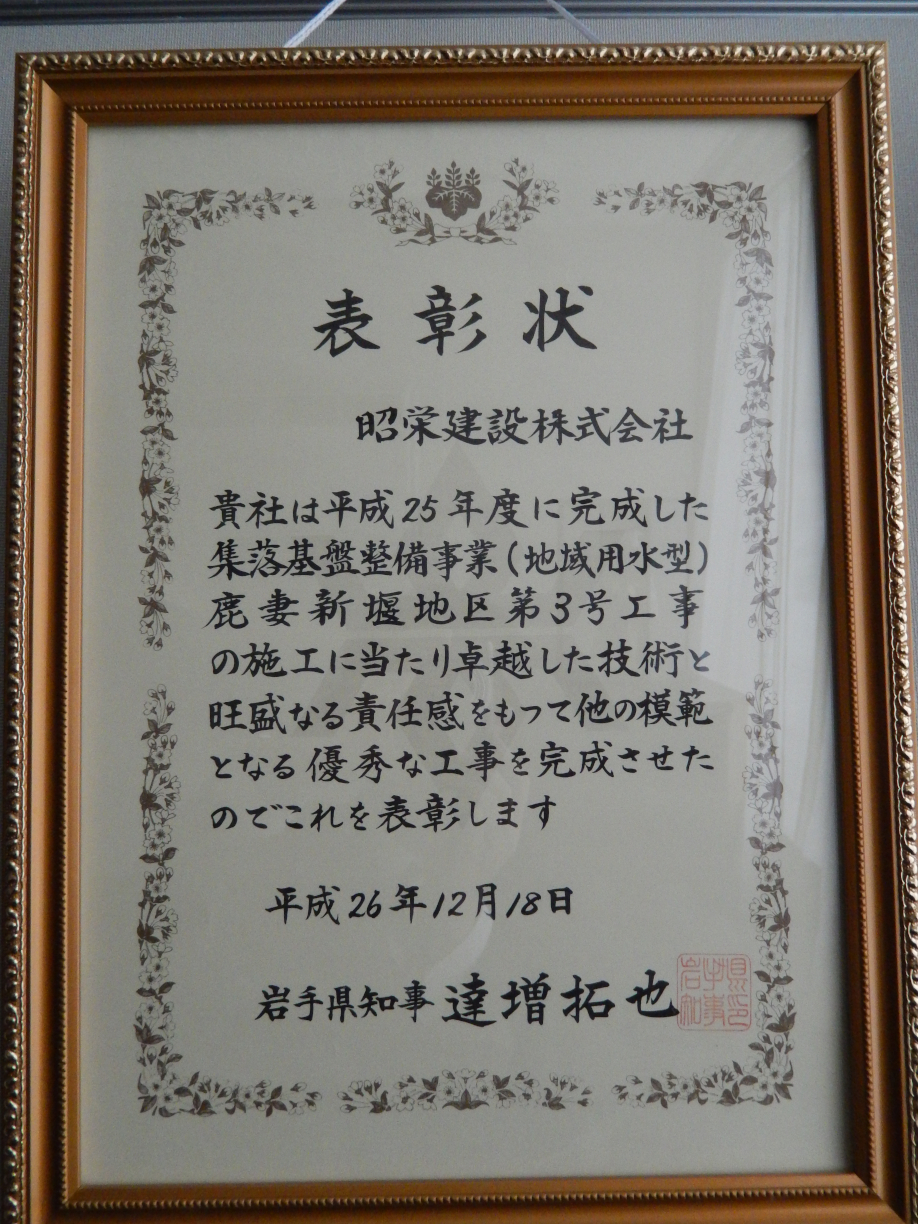 表彰状
昭栄建設株式会社
貴社は平成25年度に完成した
集落基盤整備事業(地域用水型)
鹿妻新堰地区第3号工事
の施工に当たり卓越した技術と
旺盛なる責任感をもって他の模範
となる優秀な工事を完成させた
のでこれを表彰します
平成26年12月18日
岩手県知事 達増拓也
岩手県知事印